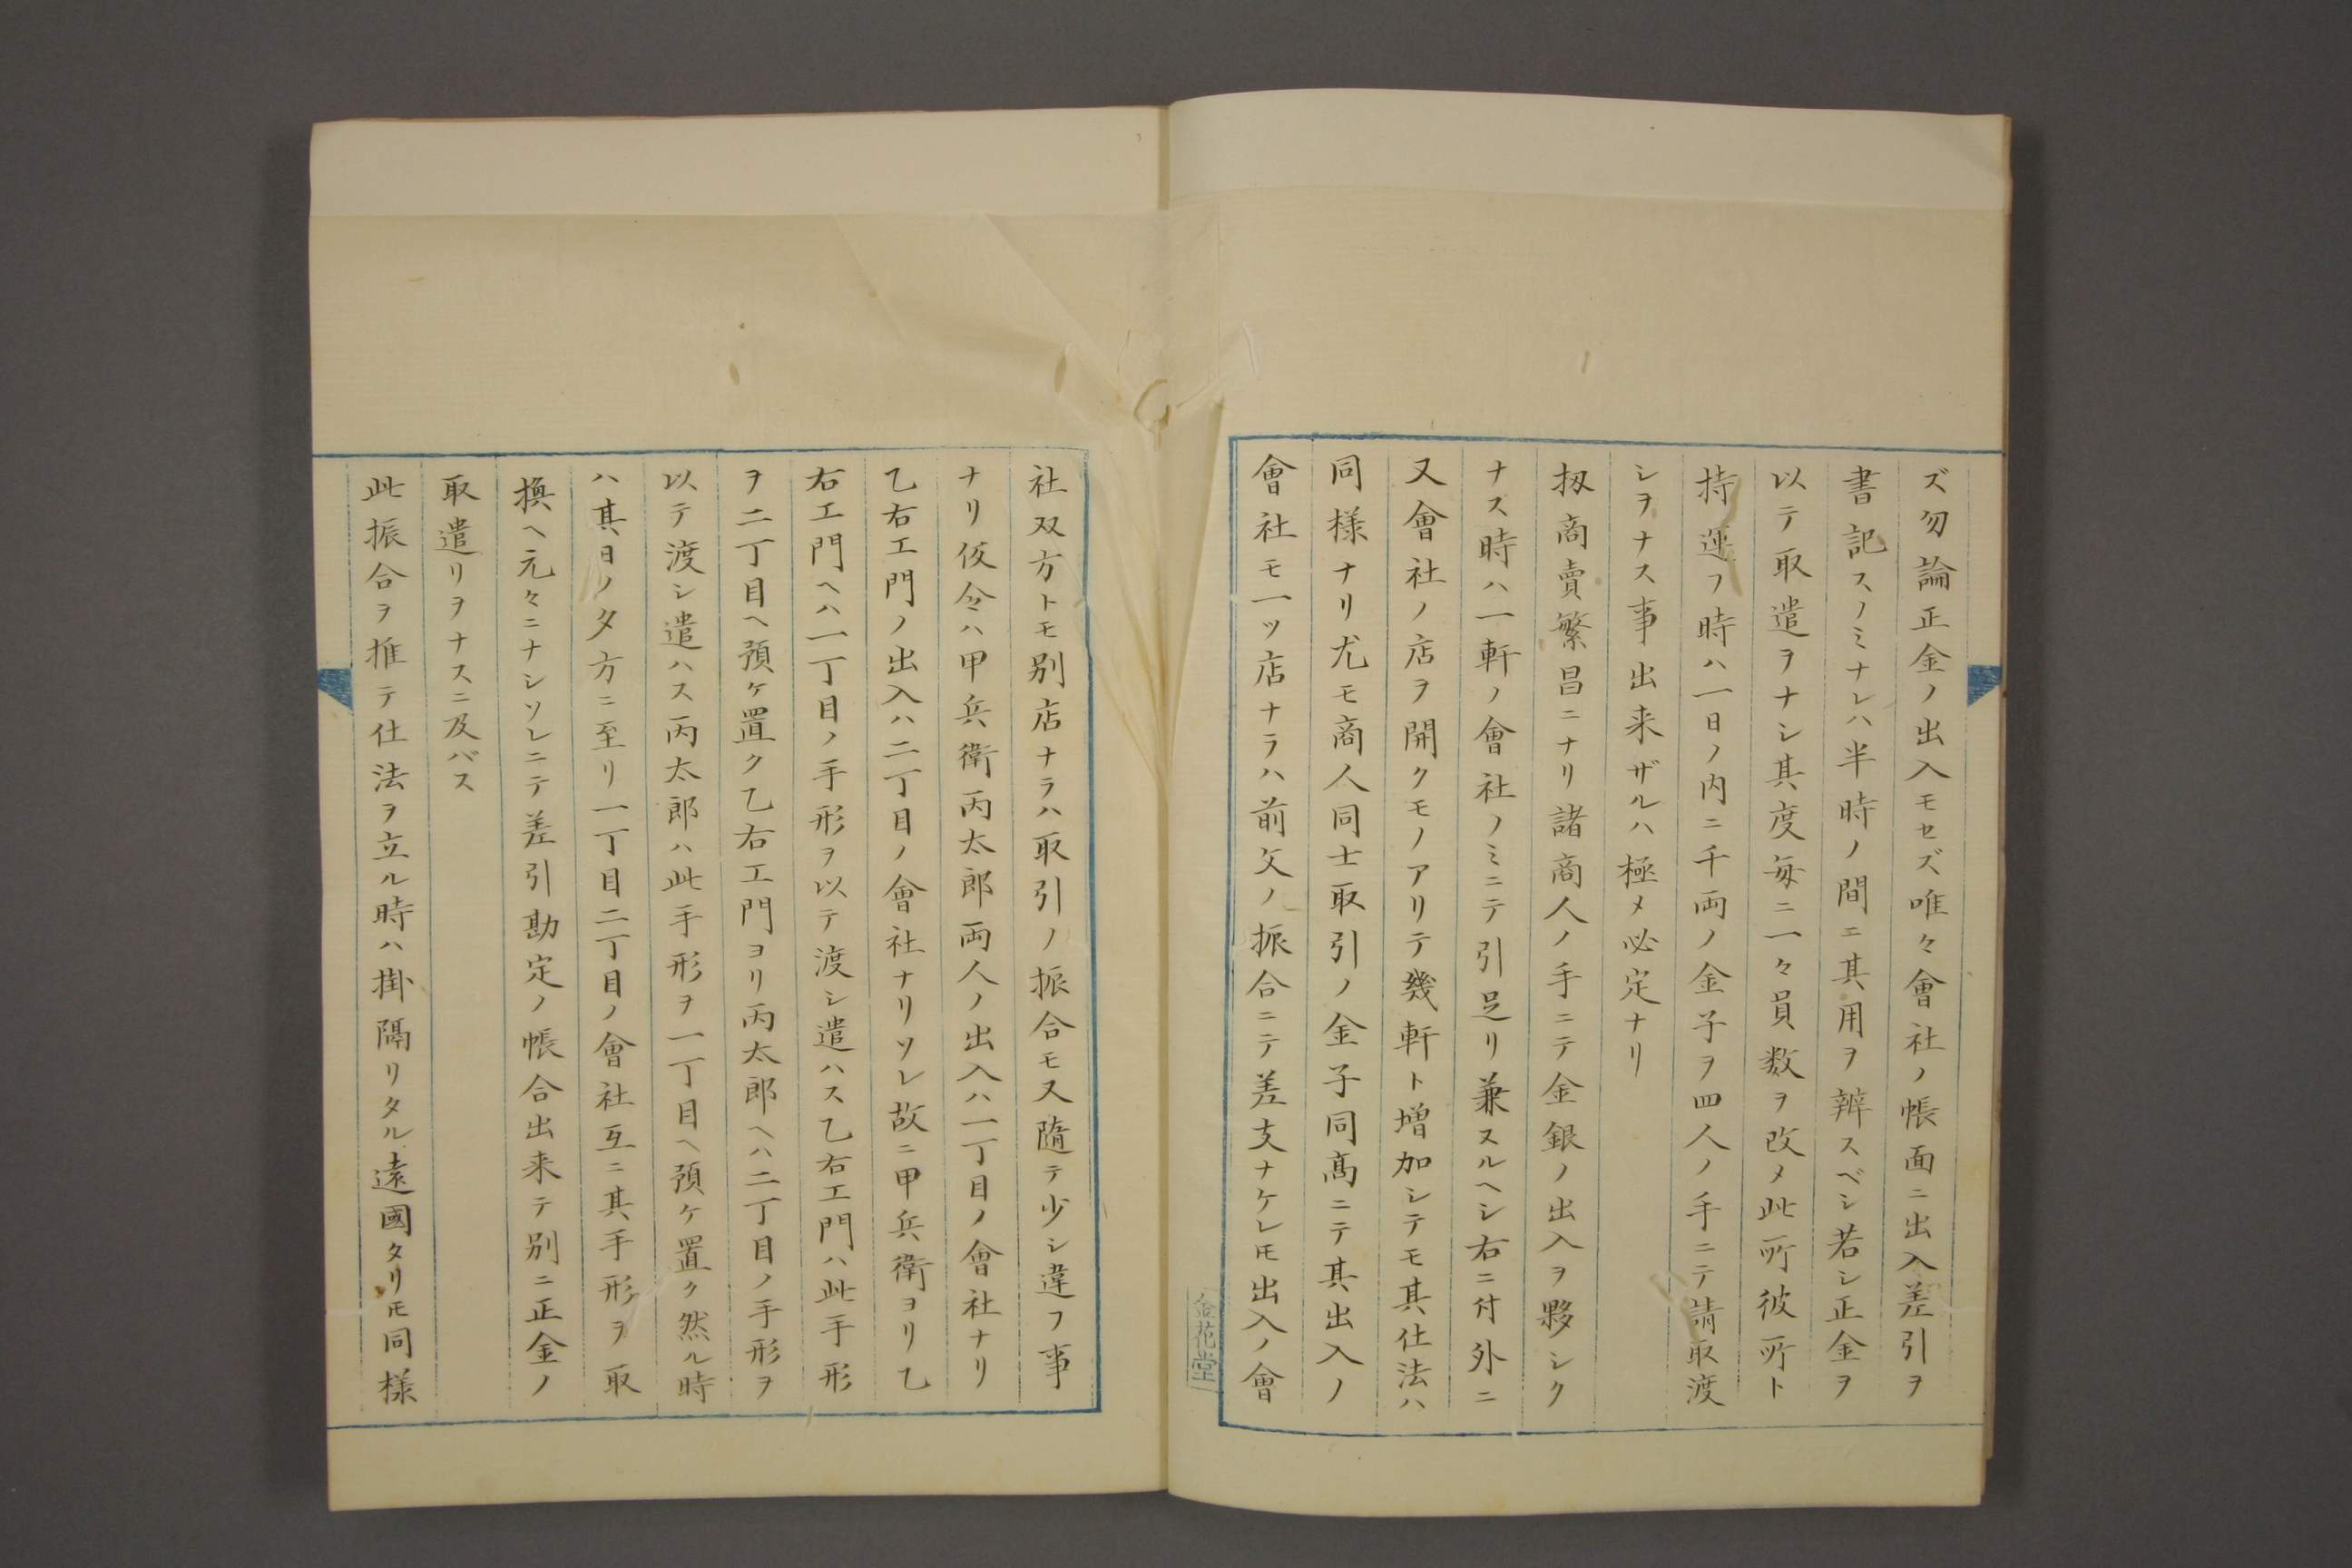 ズ勿論正金ノ出入モセズ唯々會社ノ帳面ニ出入差引ヲ
書記スノミナレハ半時ノ間ニ其用ヲ辨スベシ若シ正金ヲ
以テ取遣ヲナシ其度毎ニ一々員数ヲ改メ此所彼所ト
持運フ時ハ一日ノ内ニ千両ノ金子ヲ四人ノ手ニテ請取渡
シヲナス事出来ザルハ極メ必定ナリ
扨商賣繁昌ニナリ諸商人ノ手ニテ金銀ノ出入ヲ夥シク
ナス時ハ一軒ノ會社ノミニテ引足リ兼スルヘシ右ニ付外ニ
又會社ノ店ヲ開クモノアリテ幾軒ト増加シテモ其仕法ハ
同様ナリ尤モ商人同士取引ノ金子同髙ニテ其出入ノ
會社モ一ツ店ナラハ前文ノ振合ニテ差支ナケレ𪜈出入ノ會
金花堂
社双方トモ別店ナラハ取引ノ振合モ又隨テ少シ違フ事
ナリ仮令ハ甲兵衛丙太郎両人ノ出入ハ一丁目ノ會社ナリ
乙右エ門ノ出入ハ二丁目ノ會社ナリソレ故ニ甲兵衛ヨリ乙
右エ門ヘハ一丁目ノ手形ヲ以テ渡シ遣ハス乙右エ門ハ此手形
ヲ二丁目ヘ預ケ置ク乙右エ門ヨリ丙太郎ヘハ二丁目ノ手形ヲ
以テ渡シ遣ハス丙太郎ハ此手形ヲ一丁目ヘ預ケ置ク然ル時
ハ其日ノ夕方ニ至リ一丁目二丁目ノ會社互ニ其手形ヲ取
換ヘ元々ニナシソレニテ差引勘定ノ帳合出来テ別ニ正金ノ
取遣リヲナスニ及バス
此振合ヲ推テ仕法ヲ立ル時ハ掛隔リタル遠國タリ𪜈同様